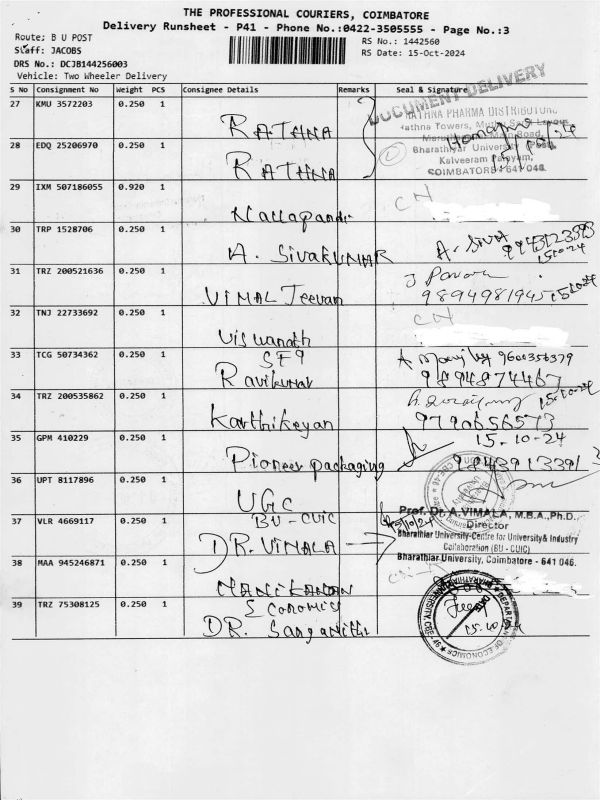 THE PROFESSIONAL COURIERS, COIMBATORE
Delivery Runsheet - P41 - Phone No.:0422-3505555 - Page No.:3
Route: B U POST
Staff: JACOBS
RS No.: 1442560
DRS No.: DCJB144256003
RS Date: 15-Oct-2024
Vehicle: Two Wheeler Delivery
S No Consignment No Weight PCS Consignee Details Remarks Seal & Signature
DOCUMENT DELIVERY
27 KMU 3572203 0.250 1 RATHNA
RATHNA PHARMA DISTRIBUTORS
28 EDQ 25206970 0.250 1 RATHNA
Bharathiyar University Post,
Kalveeram Palayam,
COIMBATORE-641 046.
29 IXM 507186055 0.920 1 Nallapandi CN
30 TRP 1528706 0.250 1 A. SIVAKUMAR A. Siva
15-10-24
31 TRZ 200521636 0.250 1 VIMAL Jeevan J Pavan
9894981945 15-10-24
32 TNJ 22733692 0.250 1 Viswanath CN
33 TCG 50734362 0.250 1 SF9 9600356379
Ravikumar 9894874467
34 TRZ 200535862 0.250 1 Karthikeyan 15-10-24
9790656573
35 GPM 410229 0.250 1 Pioneer packaging 15-10-24
9843913391
36 UPT 8117896 0.250 1 UGC
37 VLR 4669117 0.250 1 BU-CUIC
DR. VIMALA
Prof. Dr. A.VIMALA, M.B.A., Ph.D.,
Director
Bharathiar University-Centre for University& Industry
Collaboration (BU - CUIC)
Bharathiar University, Coimbatore - 641 046.
38 MAA 945246871 0.250 1 MANIKANDAN
39 TRZ 75308125 0.250 1 Economics
DR. Sanganithi
15-10-24